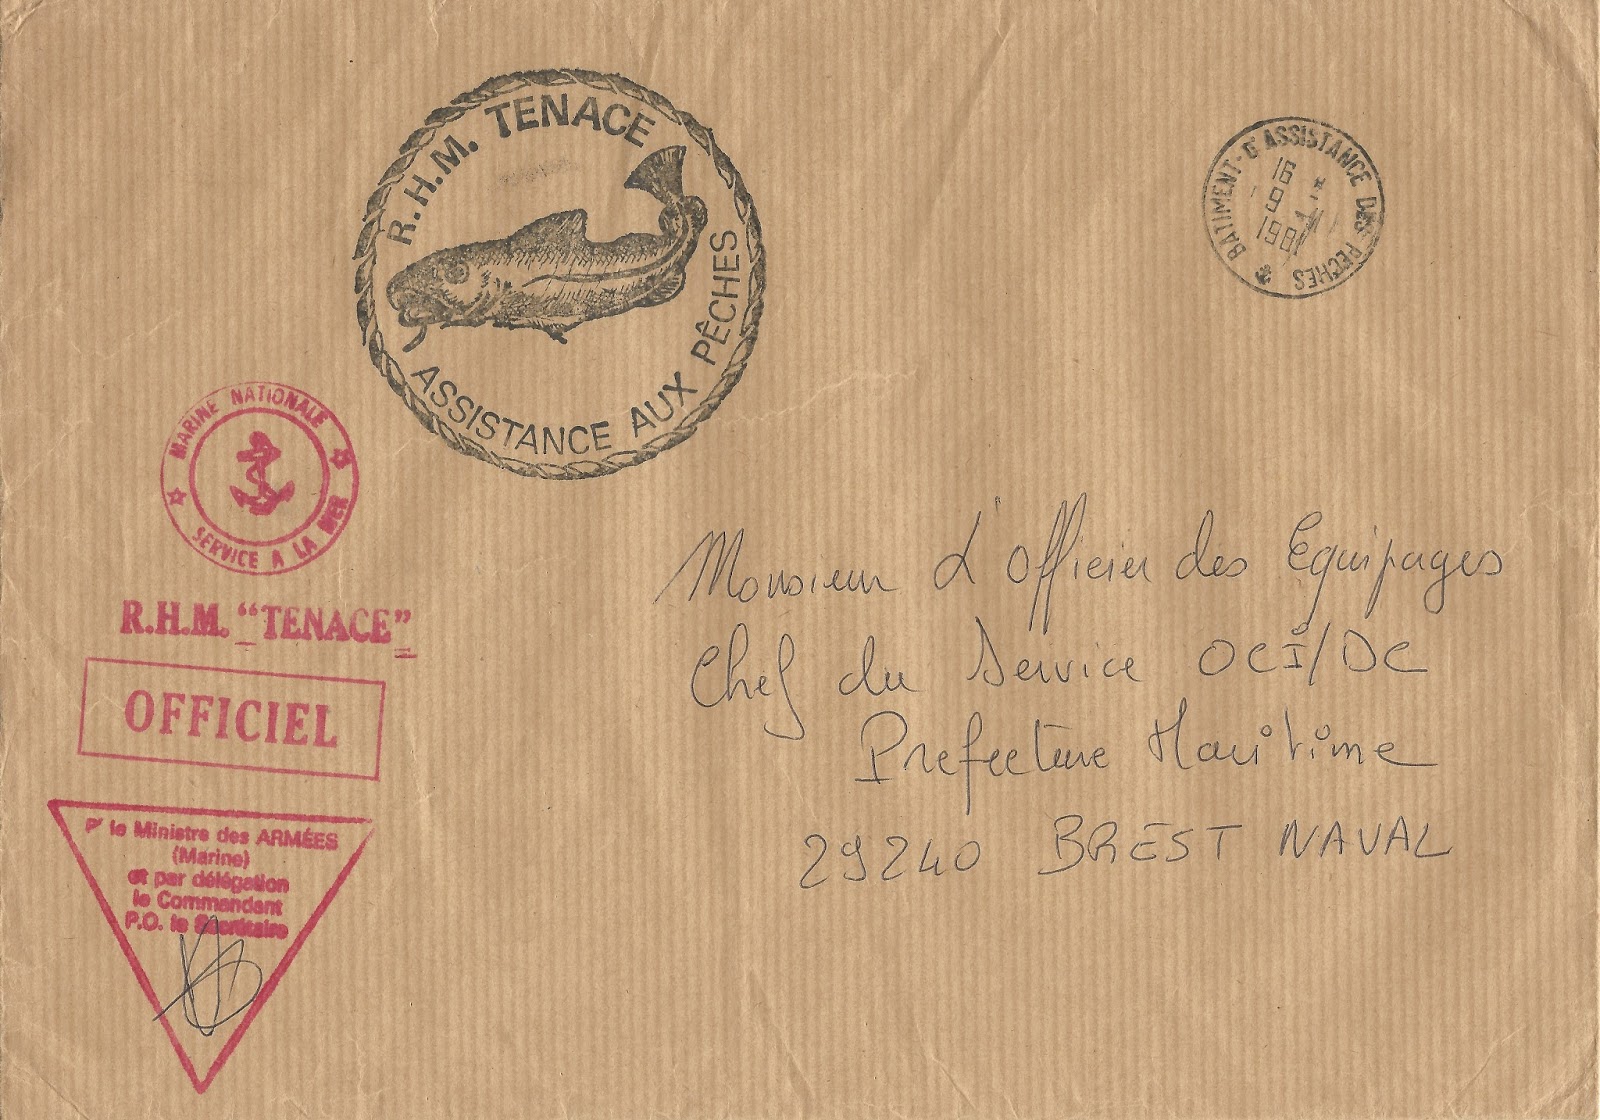 R.H.M. TENACE
ASSISTANCE AUX PÊCHES
BATIMENT-D'ASSISTANCE DES PECHES
16
9
1981
MARINE NATIONALE
SERVICE A LA MER
R.H.M. "TENACE"
OFFICIEL
Pr le Ministre des ARMÉES
(Marine)
et par délégation
le Commandant
P.O. le Secrétaire
Monsieur L'Officier des Equipages
Chef du Service OCI/DC
Prefecture Maritime
29240 BREST NAVAL